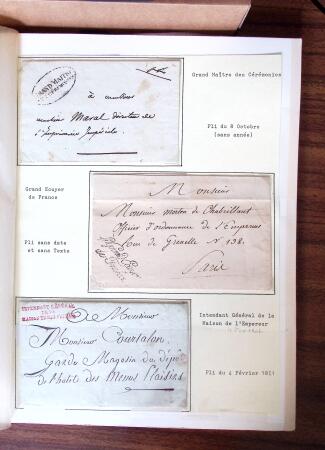 Grand Maître des Cérémonies
GRAND MAITRE
à monsieur
monsieur Marcel directeur de
l'Imprimerie Impériale
Pli du 8 Octobre
(sans année)
Grand Ecuyer
de France
Pli sans date
et sans Texte
Monsieur
Monsieur morton de Chabrillant
Officier d'ordonnance de l'Empereur
Rue de Grenelle N° 138.
Paris
INTENDANT GÉNÉRAL
DE LA
MAISON DE L'EMPEREUR
A Monsieur
Monsieur Courtalon
Garde Magasin du dépôt
de l'hôtel des Menus Plaisirs
Intendant Général de la
Maison de l'Empereur
Pli du 4 Février 1811